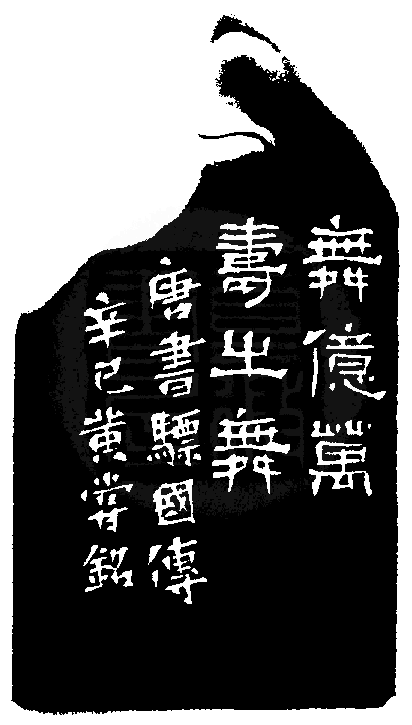 舞億萬
壽之舞
唐書驃國傳
辛巳黃嘗銘